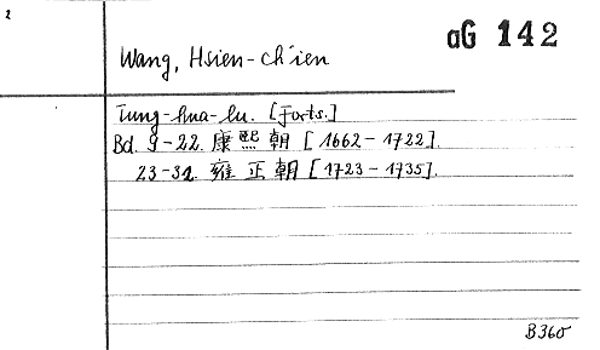 2
aG 142
Wang, Hsien-ch'ien
Tung-hua-lu. [Forts.]
Bd. 9-22. 康熙朝 [1662-1722].
23-32. 雍正朝 [1723-1735].
B360